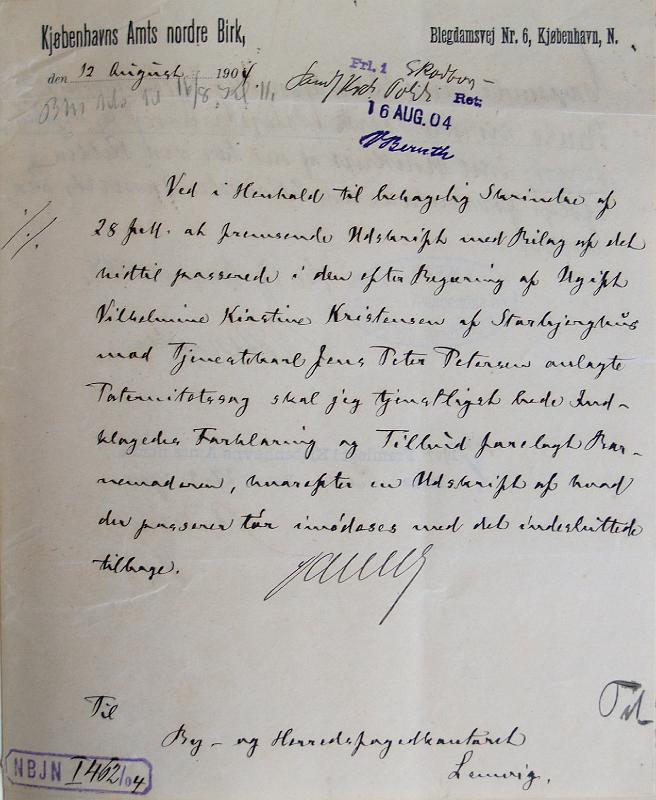 Kjøbenhavns Amts nordre Birk,
Blegdamsvej Nr. 6, Kjøbenhavn, N.
den 12 August 1904
Frl. 1
Ret:
16 AUG. 04
Ved i Henhold til behagelig Skrivelse af
28 f.M. at fremsende Udskrift med Bilag af det
hidtil passerede i den efter Begæring af Ugift
Vilhelmine Kirstine Kristensen af Starbjerghus
mod Tjenestekarl Jens Peter Petersen anlagte
Paternitetssag skal jeg tjenstligst bede Ind-
klagedes Forklaring og Tilbud forelagt Bar-
nemoderen, hvorefter en Udskrift af hvad
der passerer tør imødeses med det indesluttede
tilbage.
Til
By- og Herredsfogedkontoret
Lemvig.
NBJN I 462/04